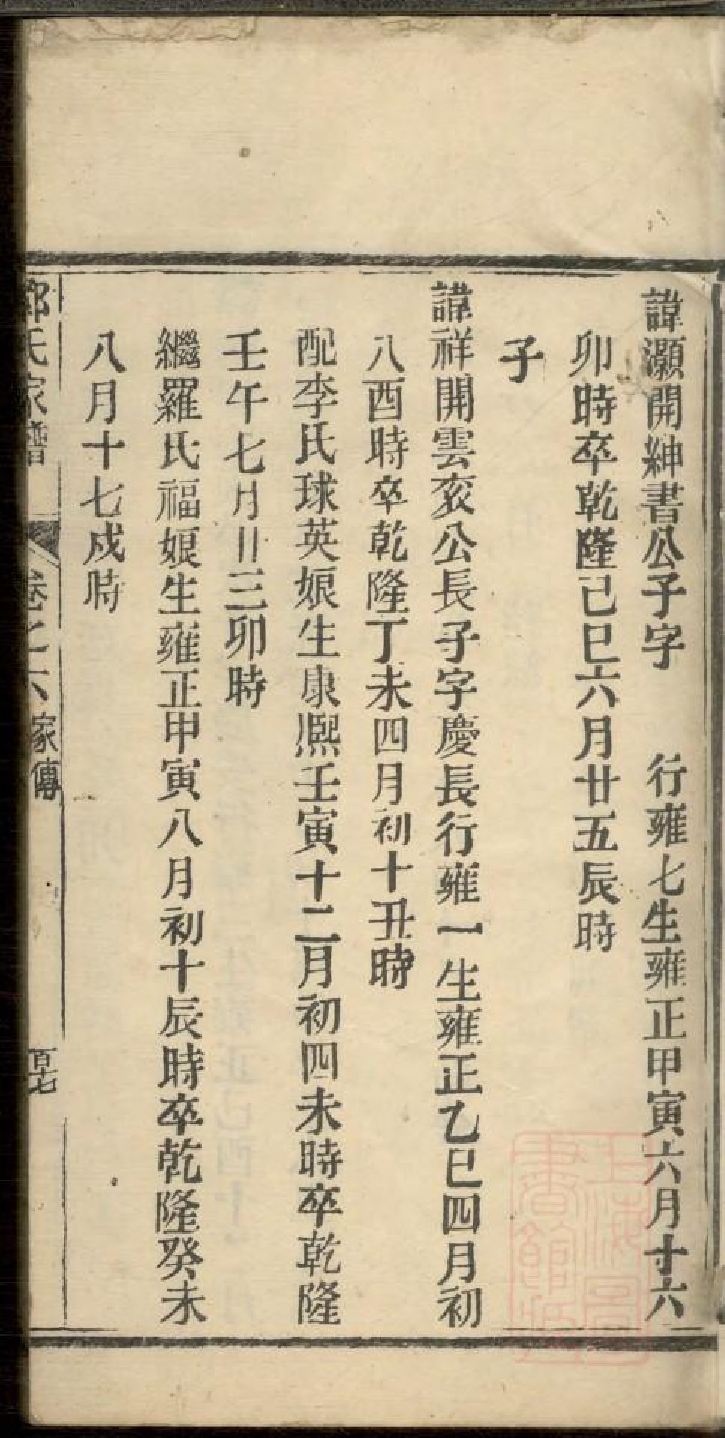 諱灝開紳書公子字　行雍七生雍正甲寅六月十六
卯時卒乾隆己巳六月廿五辰時
子
諱祥開雲亥公長子字慶長行雍一生雍正乙巳四月初
八酉時卒乾隆丁未四月初十丑時
配李氏球英娘生康熈壬寅十二月初四未時卒乾隆
壬午七月廿三卯時
繼羅氏福娘生雍正甲寅八月初十辰時卒乾隆癸未
八月十七戍時
氏家譜　卷之六　家傳　百七
上海圖書館藏